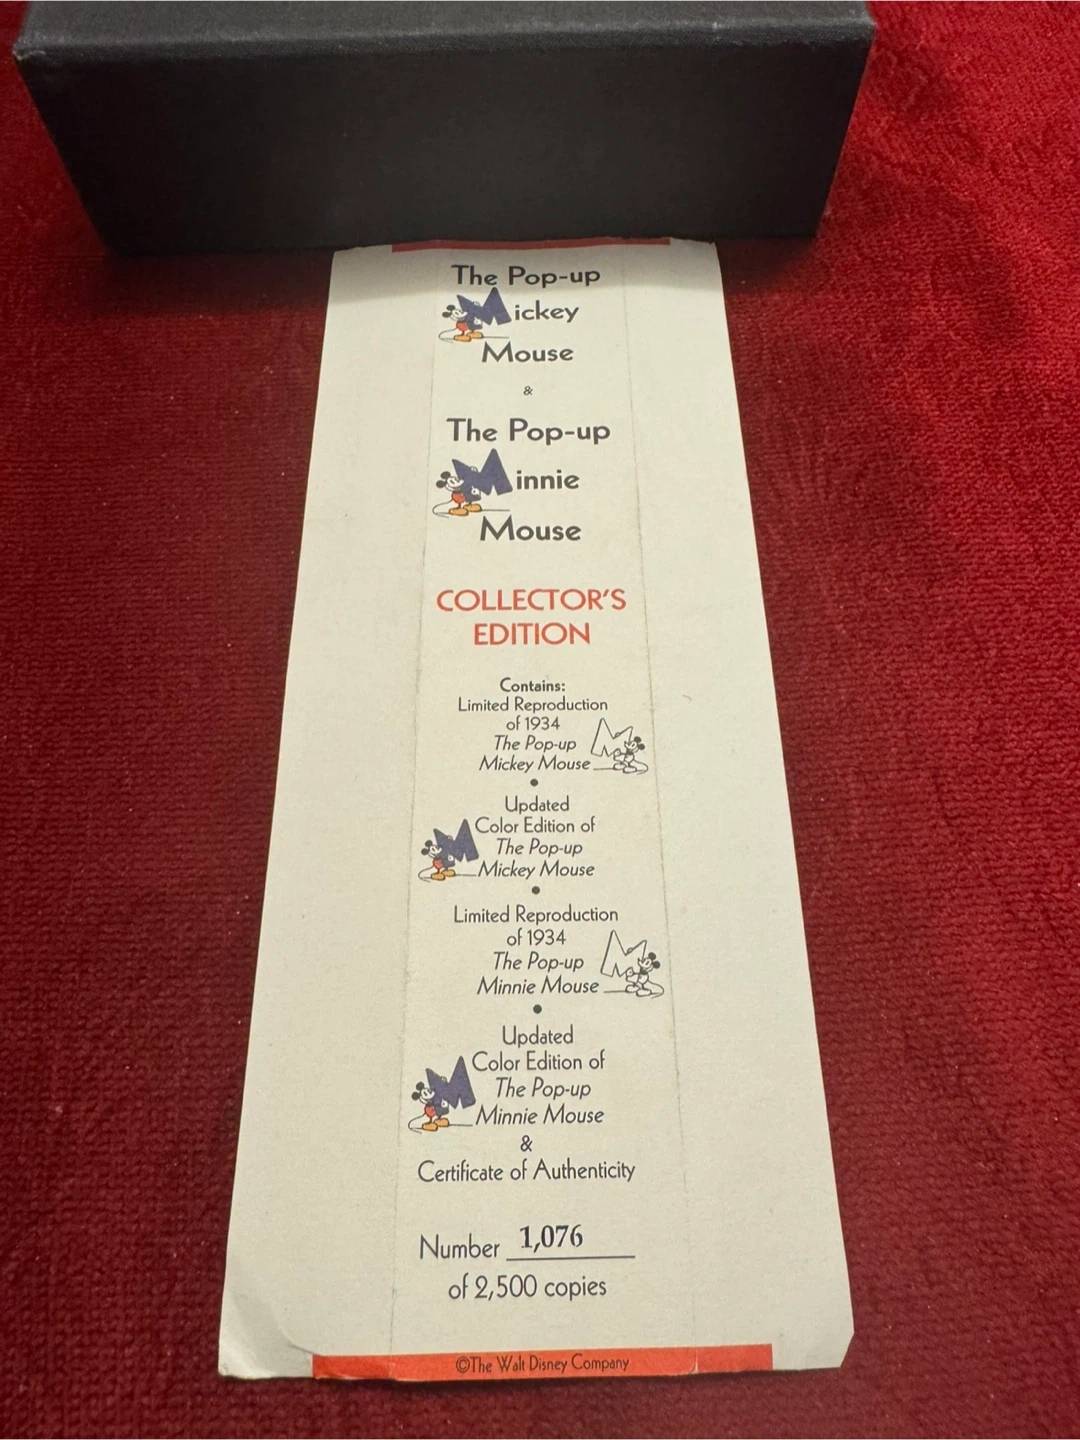 The Pop-up
Mickey
Mouse
&
The Pop-up
Minnie
Mouse
COLLECTOR'S
EDITION
Contains:
Limited Reproduction
of 1934
The Pop-up
Mickey Mouse
•
Updated
Color Edition of
The Pop-up
Mickey Mouse
•
Limited Reproduction
of 1934
The Pop-up
Minnie Mouse
•
Updated
Color Edition of
The Pop-up
Minnie Mouse
&
Certificate of Authenticity
Number 1,076
of 2,500 copies
©The Walt Disney Company